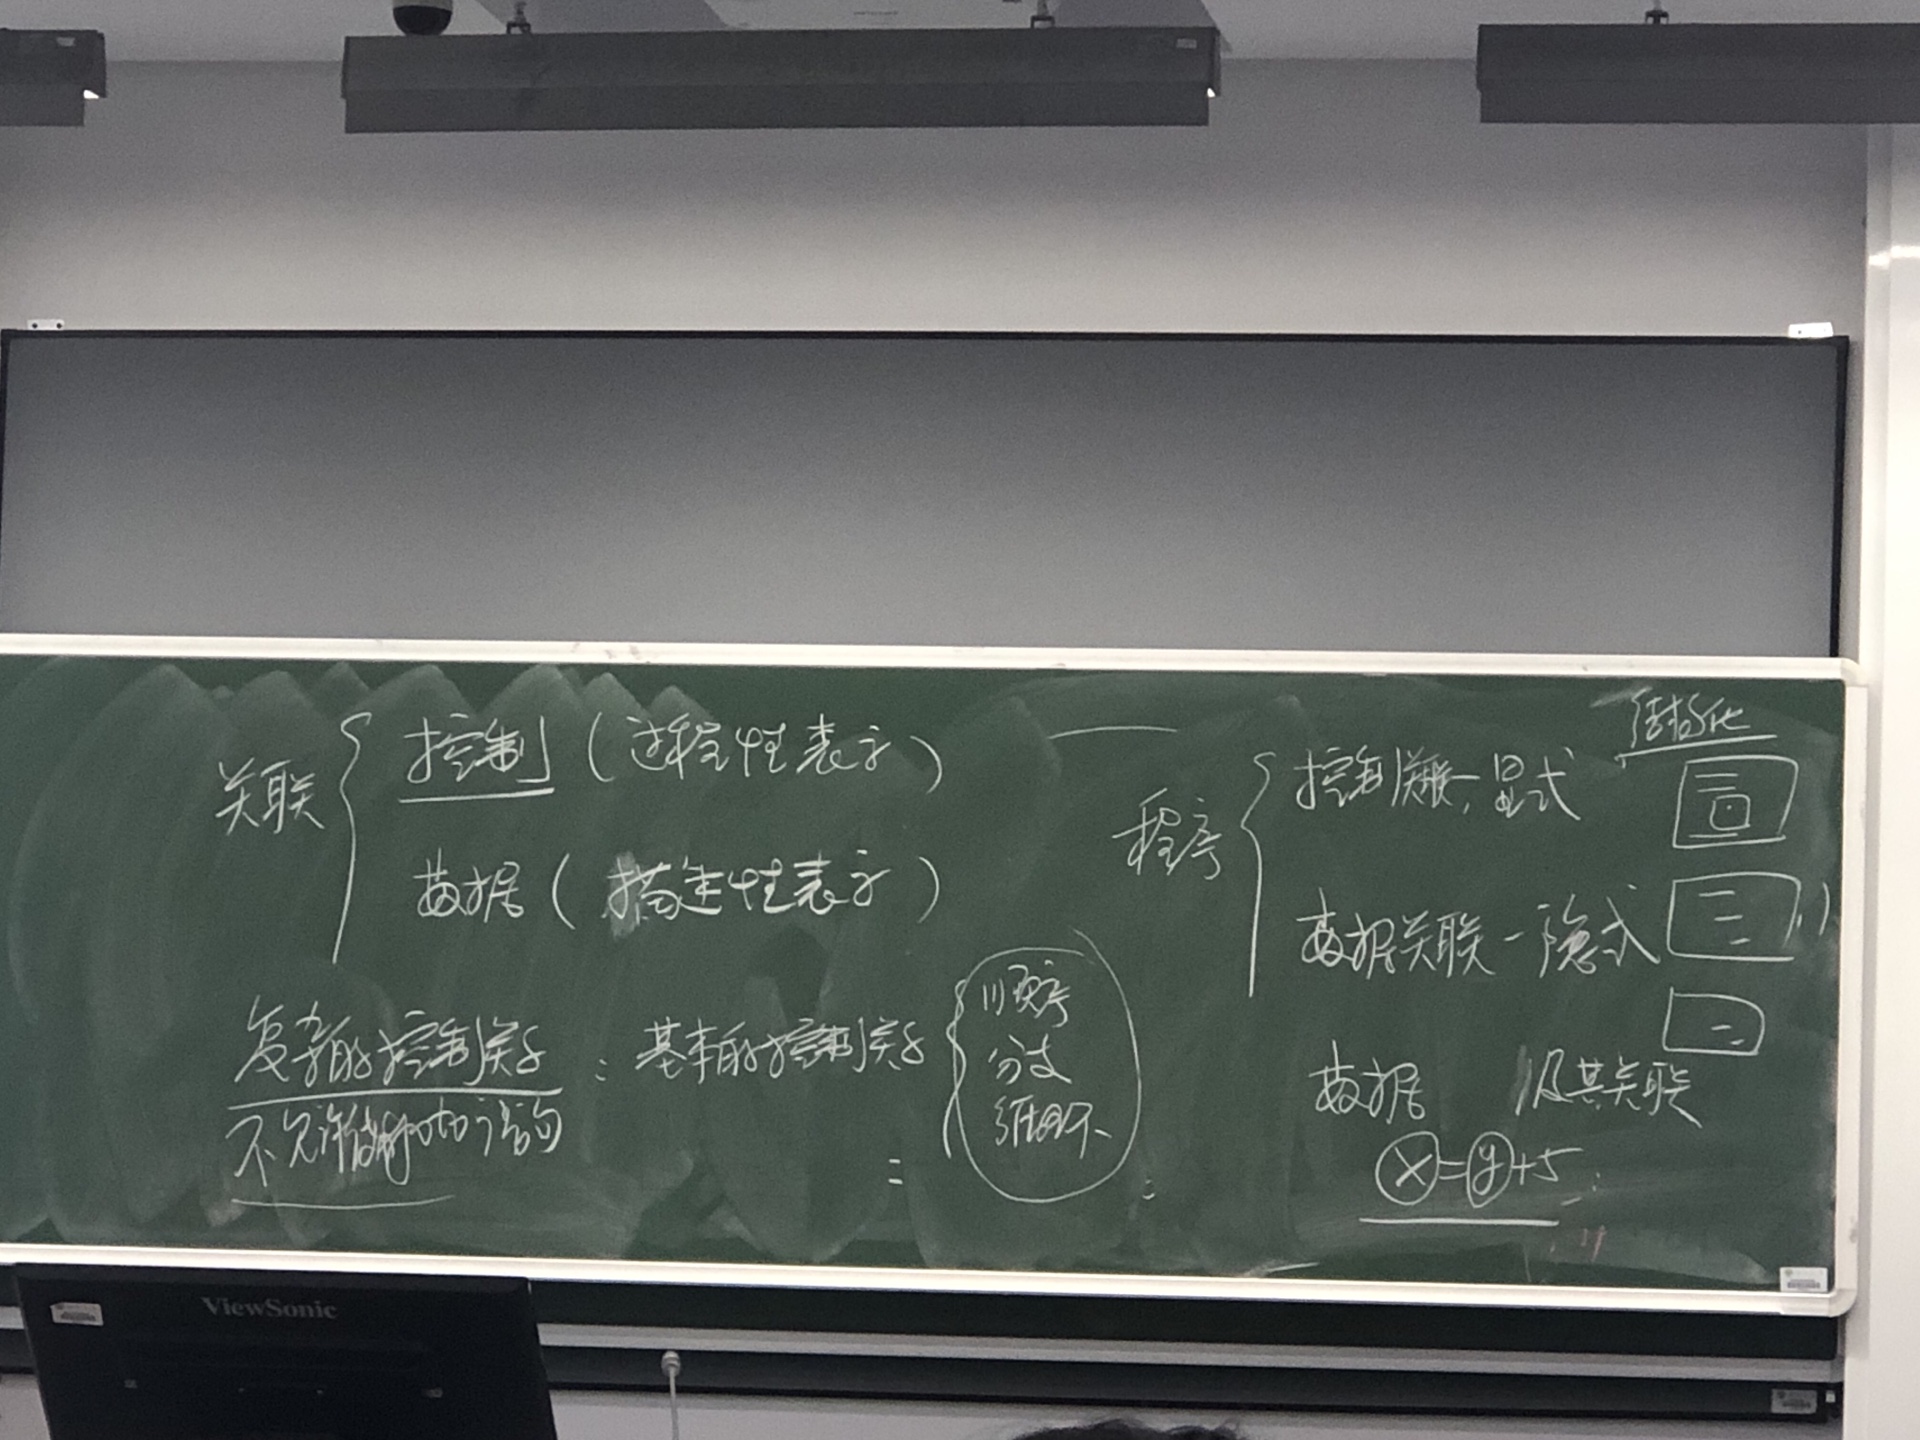 关联
控制（过程性表示）
数据（描述性表示）
复杂的控制关系：基本的控制关系
顺序
分支
循环
不允许使用goto语句
=
结构化
程序
控制关联—显式
数据关联—隐式
数据 及其关联
x=y+5
ViewSonic